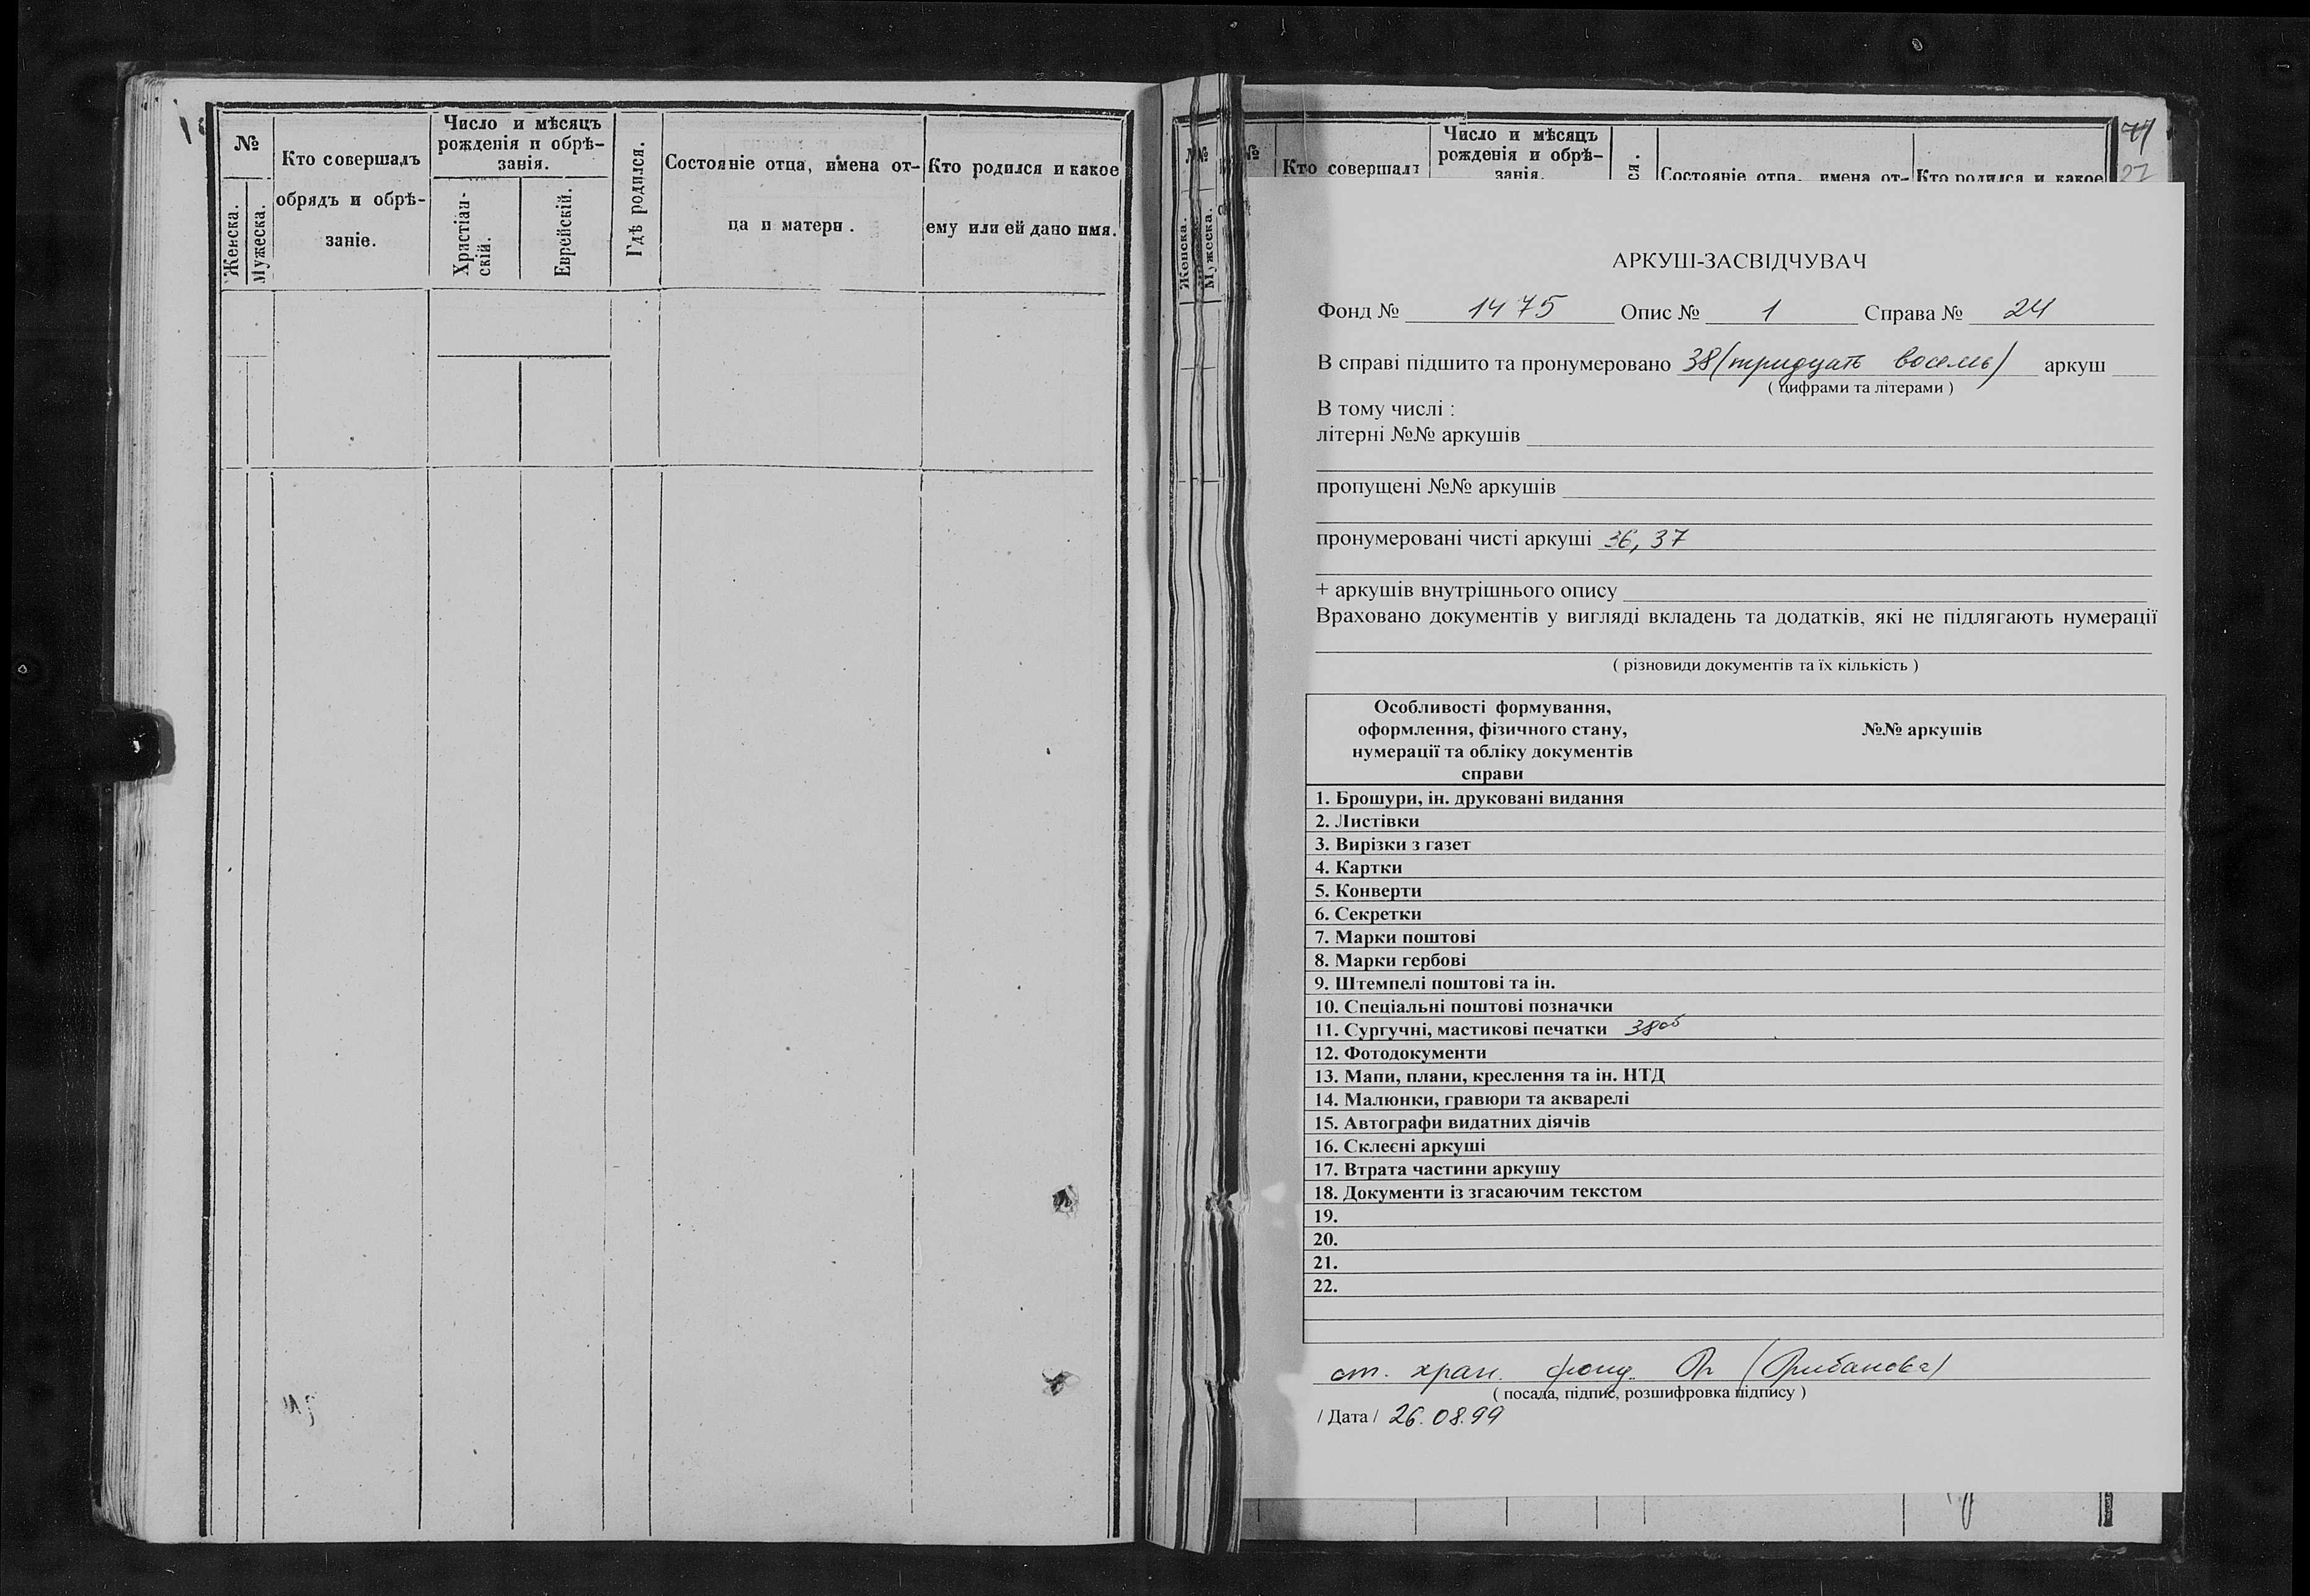 №
Женска.
Мужеска.
Кто совершалъ
обрядъ и обрѣ-
заніе.
Число и мѣсяцъ
рожденія и обрѣ-
занія.
Христіан-
скій.
Еврейскій.
Гдѣ родился.
Состояніе отца, имена от-
ца и матери.
Кто родился и какое
ему или ей дано имя.
№
Женска.
Мужеска.
№
Кто совершалъ
Число и мѣсяцъ
рожденія и обрѣ-
занія.
ся.
Состояніе отца, имена от-
Кто родился и какое
АРКУШ-ЗАСВІДЧУВАЧ
Фонд № 1475 Опис № 1 Справа № 24
В справі підшито та пронумеровано 38 (тридцать восемь) аркуш
( цифрами та літерами )
В тому числі :
літерні №№ аркушів
пропущені №№ аркушів
пронумеровані чисті аркуші 36, 37
+ аркушів внутрішнього опису
Враховано документів у вигляді вкладень та додатків, які не підлягають нумерації
( різновиди документів та їх кількість )
Особливості формування,
оформлення, фізичного стану,
нумерації та обліку документів
справи
№№ аркушів
1. Брошури, ін. друковані видання
2. Листівки
3. Вирізки з газет
4. Картки
5. Конверти
6. Секретки
7. Марки поштові
8. Марки гербові
9. Штемпелі поштові та ін.
10. Спеціальні поштові позначки
11. Сургучні, мастикові печатки 38об
12. Фотодокументи
13. Мапи, плани, креслення та ін. НТД
14. Малюнки, гравюри та акварелі
15. Автографи видатних діячів
16. Склеєні аркуші
17. Втрата частини аркушу
18. Документи із згасаючим текстом
19.
20.
21.
22.
ст. хран. фонд.
( посада, підпис, розшифровка підпису )
/ Дата / 26.08.99